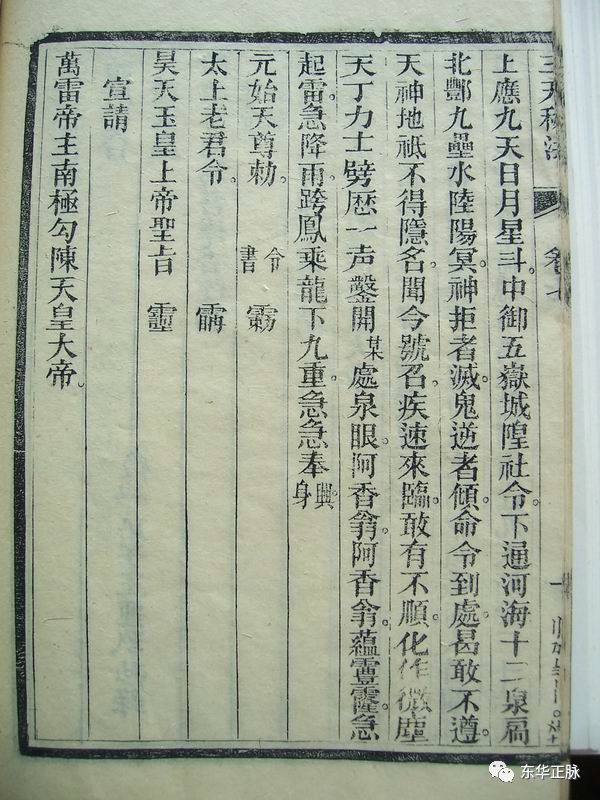 三天秘法 卷七
上應九天日月星斗。中御五嶽城隍社令。下通河海十二泉扃
北酆九壘水陸陽冥。神拒者滅。鬼逆者傾。命令到處曷敢不遵。
天神地祇不得隱名。聞今號召。疾速來臨。敢有不順。化作微塵
天丁力士劈歷一声鑿開某處泉眼。阿香翁。阿香翁。蘊
急
起雷。急降雨。跨鳳乘龍下九重。急急奉 興身
元始天尊勅。 令書
太上老君令。
昊天玉皇上帝聖旨
宣請
萬雷帝主南極勾陳天皇大帝。
东华正脉